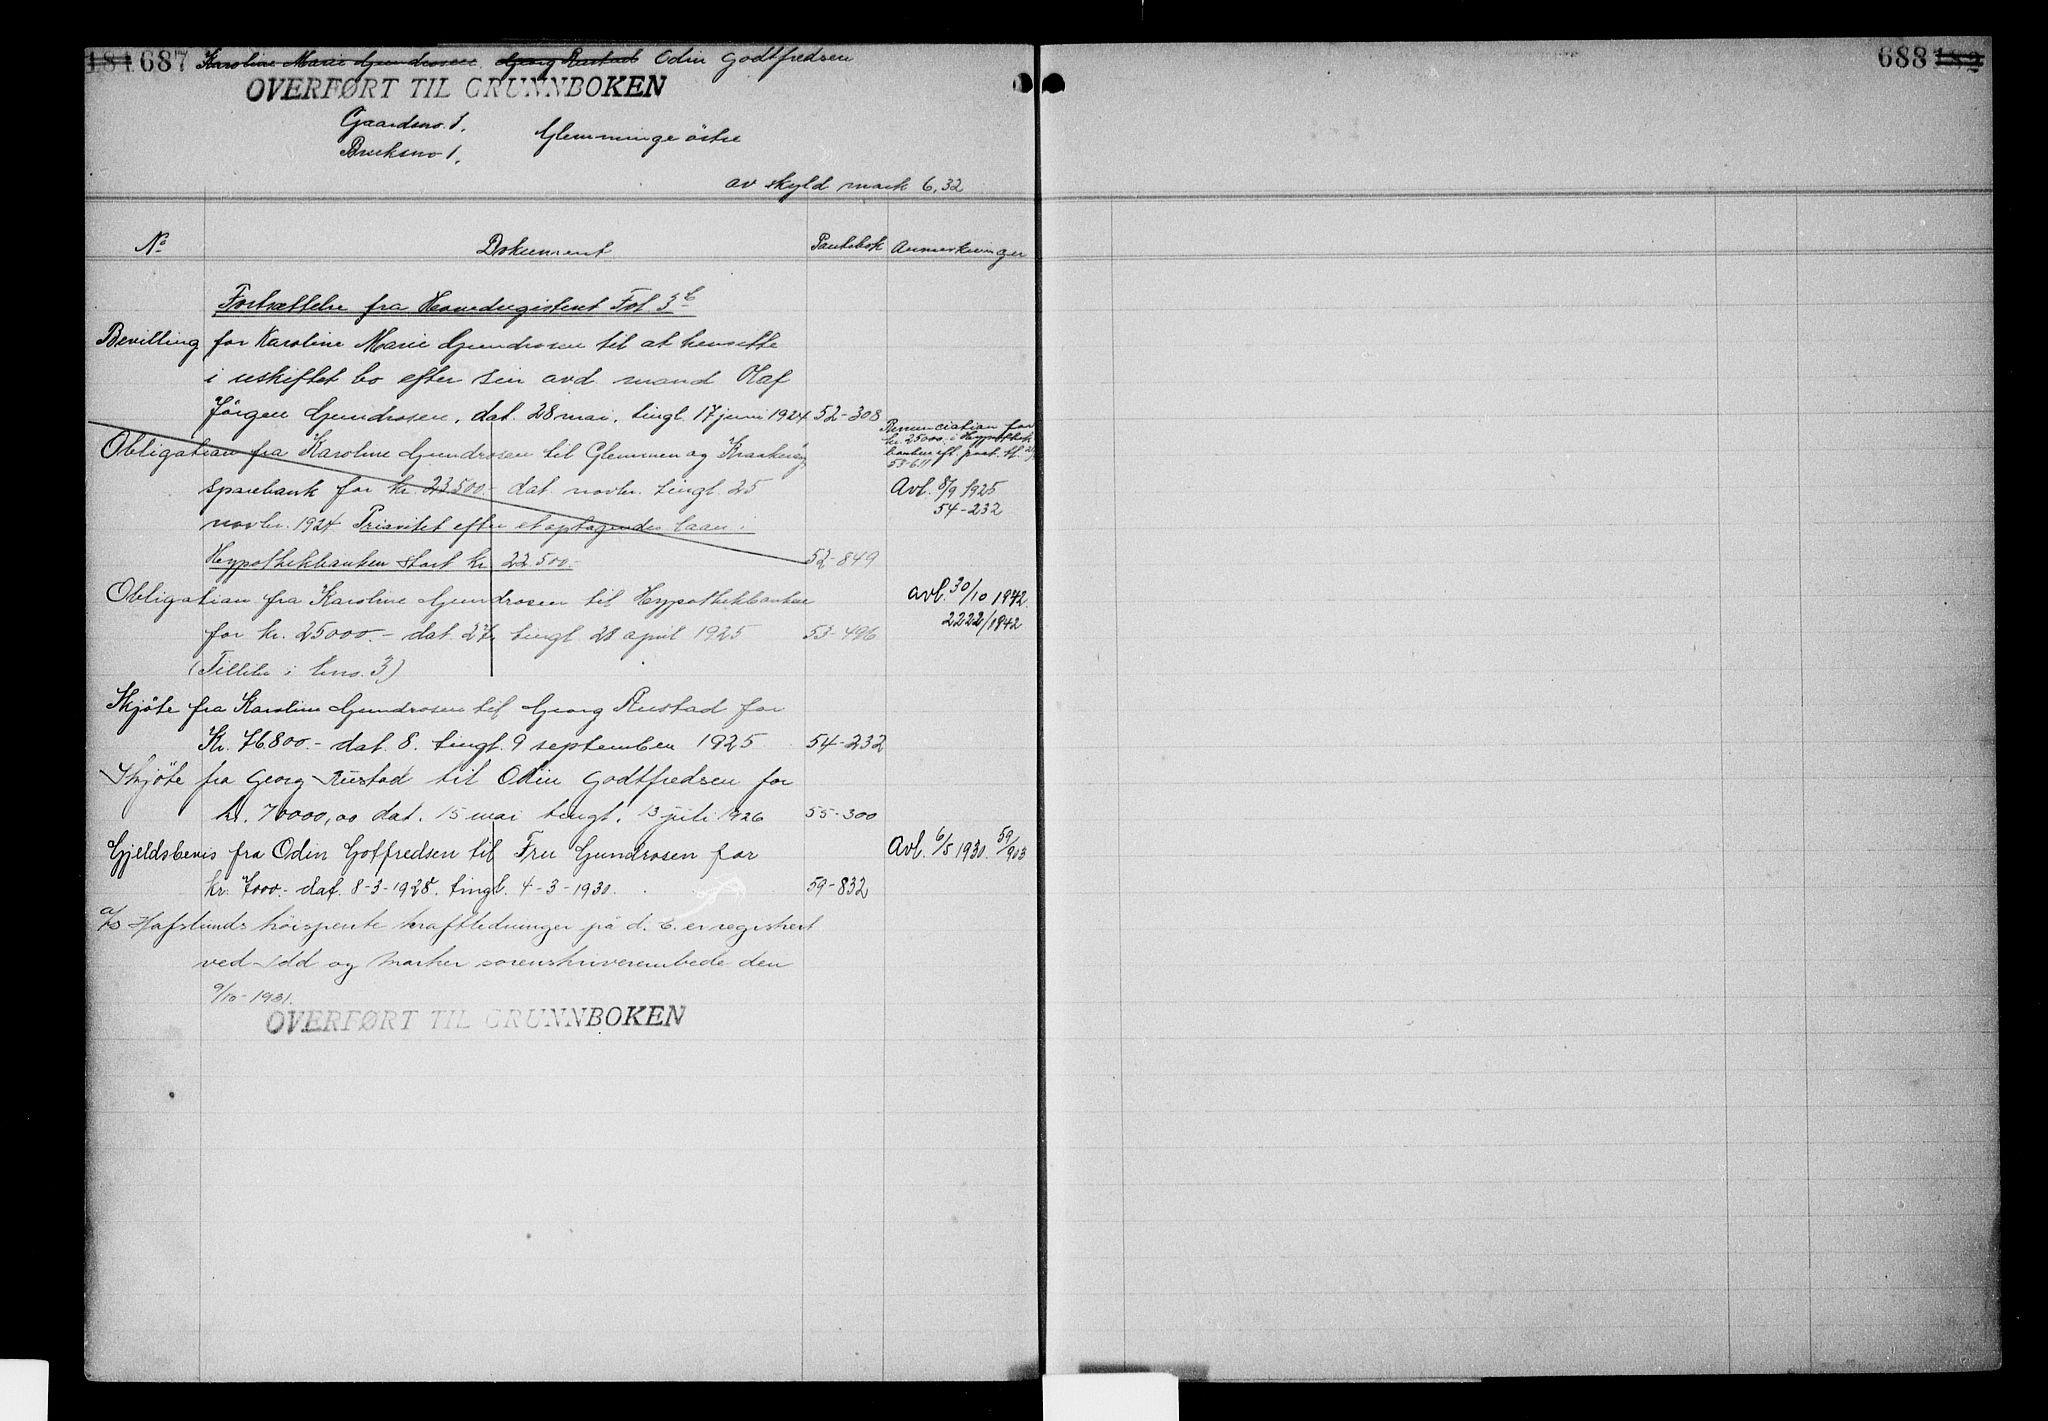 181 687 Karoline Marie Gundrosen. Georg Rustad Odin Godtfredsen
OVERFØRT TIL GRUNNBOKEN
Gaardsno. 1.
Glemminge östre
Bruksno 1.
av skyld mark 6,32
No
Dokument
Pantebok
Anmerkninger
Fortsættelse fra Hovedregistret Fol 3b
Bevilling for Karoline Marie Gundrosen til at hensitte
i uskiftet bo efter sin avd mand Olaf
Jörgen Gundrosen, dat. 28 mai, tingl. 17 juni 1924 52-308
Renunciation for
kr. 25000.- i Hypothek
banken efl. paat. tl.
53-611
Obligation fra Karoline Gundrosen til Glemmen og Kraakerøy
sparebank for kr. 23500.- dat. novbr. tingl. 25
Avl. 8/9 1925
54-232
novbr. 1924 Prioritet efter et optagendes laan i
Hypothekbanken stort kr. 22.500.- 52-849
Obligation fra Karoline Gundrosen til Hypothekbanken
avl. 30/10 1942.
2222/1942
for kr. 25000.- dat. 27, tingl. 28 april 1925 53-496
(Tillike i bno. 3)
Skjöte fra Karoline Gundrosen til Georg Rustad for
Kr. 76800.- dat. 8. tingl. 9 september 1925 54-232
Skjöte fra Georg Rustad til Odin Godtfredsen for
kr. 70000,00 dat. 15 mai tingl. 13 juli 1926 55-300
Gjeldsbevis fra Odin Gotfredsen til Fru Gundrosen for
Avl. 6/5 1930. 59/903
kr. 7000.- dat. 8-3-1928. tingl. 4-3-1930. 59-832
a/s Hafslunds höispente kraftledninger på d. E. er registrert
ved Idd og Marker sorenskriverembede den
9/10-1931.
OVERFØRT TIL GRUNNBOKEN
688 182